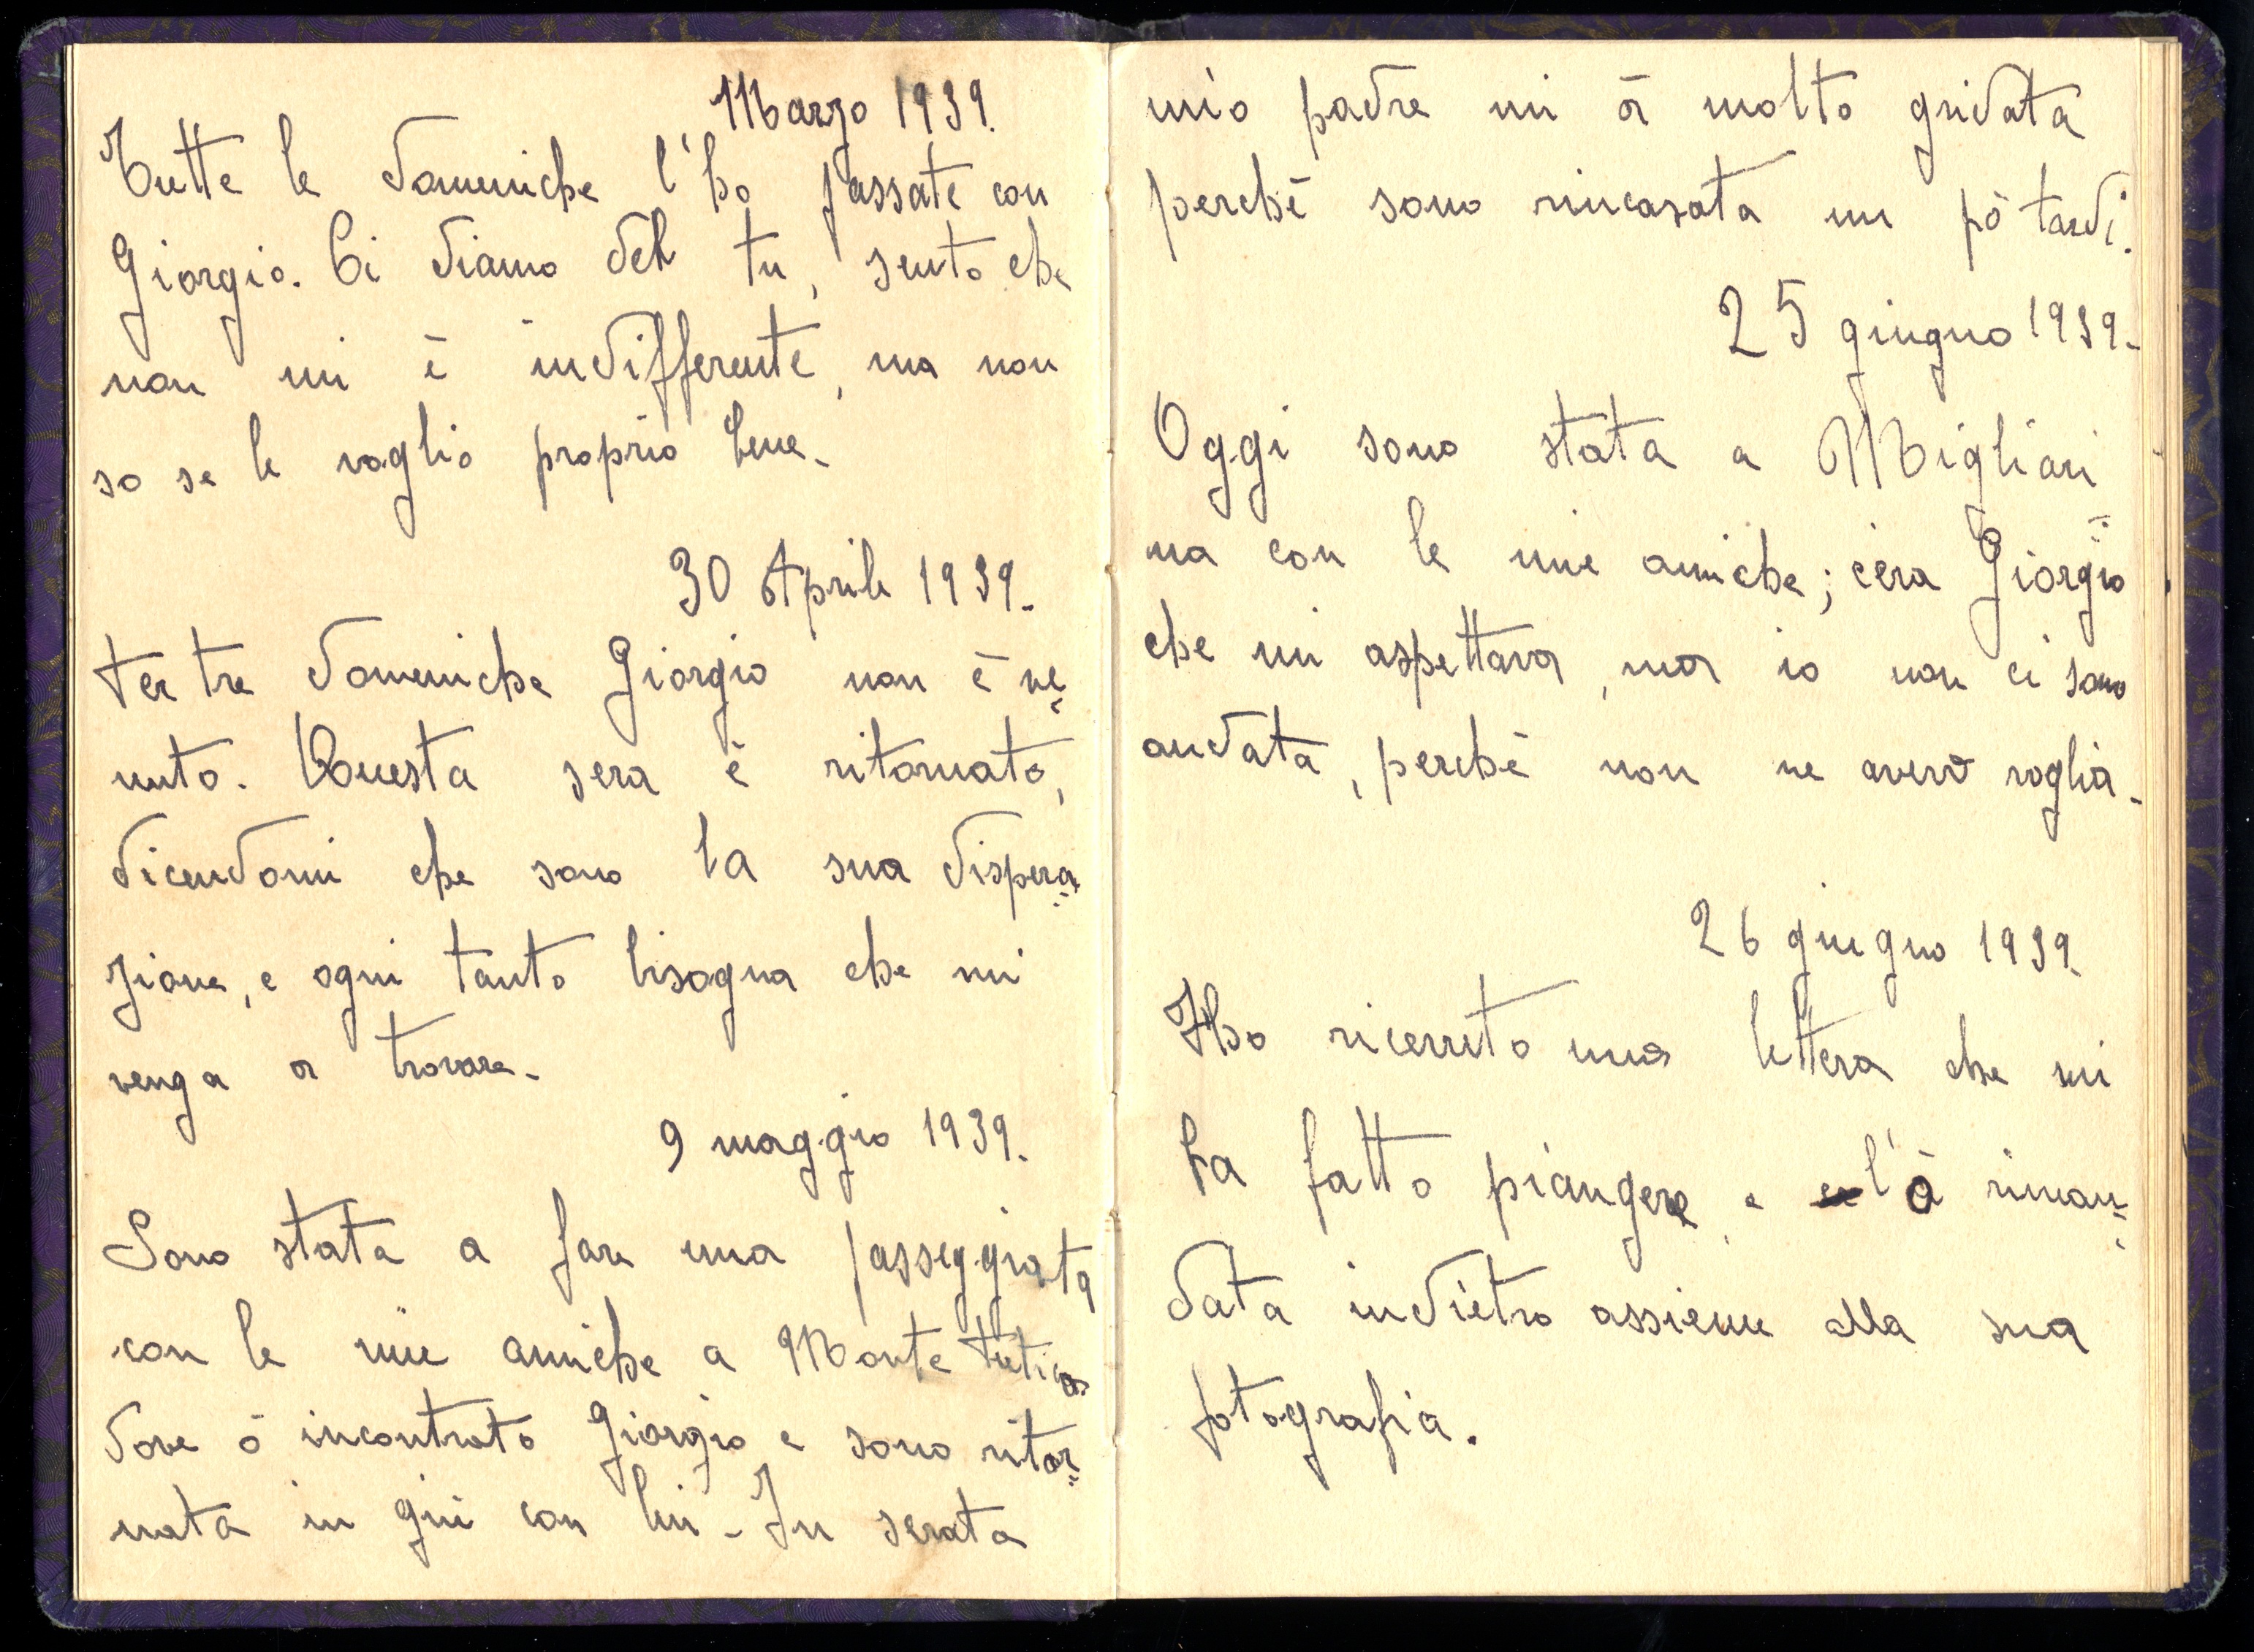 Marzo 1939.
Tutte le domeniche l'ho passate con
Giorgio. Ci diamo del tu, sento che
non mi è indifferente, ma non
so se le voglio proprio bene.
30 Aprile 1939.
Per tre domeniche Giorgio non è ve=
nuto. Questa sera è ritornato,
dicendomi che sono la sua dispera=
zione, e ogni tanto bisogna che mi
venga a trovare.
9 maggio 1939.
Sono stata a fare una passeggiata
con le mie amiche a Monte
dove ò incontrato Giorgio e sono ritor=
nata in giù con lui - In serata
mio padre mi à molto gridata
perchè sono rincasata un pò tardi.
25 giugno 1939.
Oggi sono stata a Migliari=
na con le mie amiche; c'era Giorgio
che mi aspettava, ma io non ci sono
andata, perchè non ne avevo voglia.
26 giugno 1939.
Ho ricevuto una lettera che mi
ha fatto piangere, e l'ò riman=
data indietro assieme alla sua
fotografia.